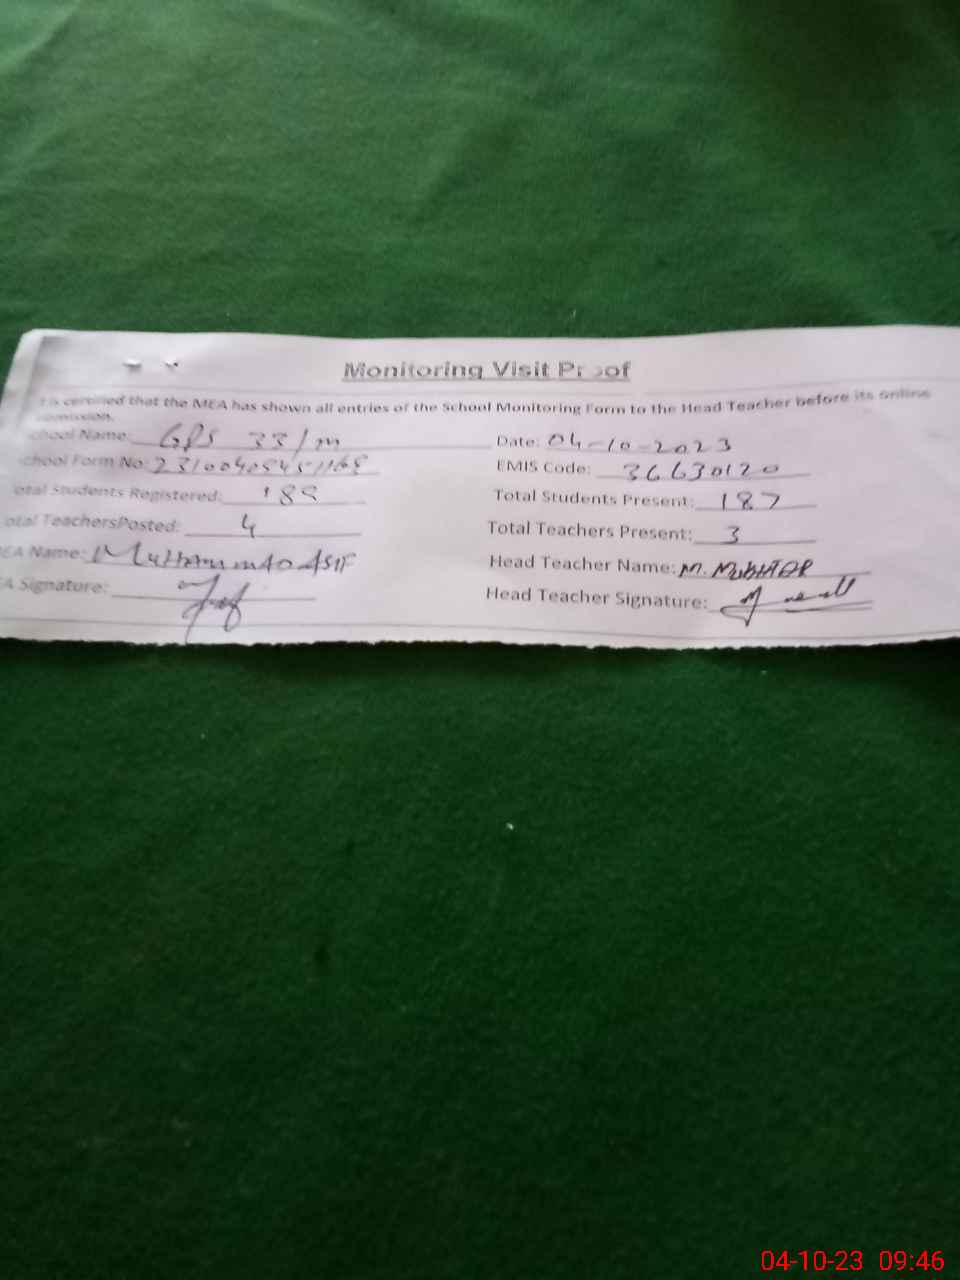 Monitoring Visit Proof
t is certified that the MEA has shown all entries of the School Monitoring Form to the Head Teacher before its online
omission.
chool Name: GPS 33/m Date: 04-10-2023
chool Form No: EMIS Code: 36630120
otal Students Registered: Total Students Present: 187
otal TeachersPosted: 4 Total Teachers Present: 3
EA Name: Muhammad Asif Head Teacher Name: M. MUKHTAR
A Signature: Head Teacher Signature:
04-10-23 09:46